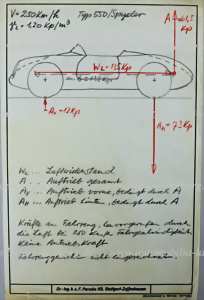 V = 250 Km/h Typ 550/Spyder
γL = 1,20 Kp/m³
A
Kp
WL = 135 Kp
Av = 13 Kp
Ah = 73 Kp
WL ... Luftwiderstand
A ... Auftrieb gesamt
Av ... Auftrieb vorne, bedingt durch A
Ah ... Auftrieb hinten, bedingt durch A
Kräfte am Fahrzeug, hervorgerufen durch
die Luft bei 250 Km/h Fahrgeschwindigkeit
Keine Antriebskraft
Fahrzeuggewicht nicht eingezeichnet
Dr.-Ing. h. c. F. Porsche KG, Stuttgart-Zuffenhausen